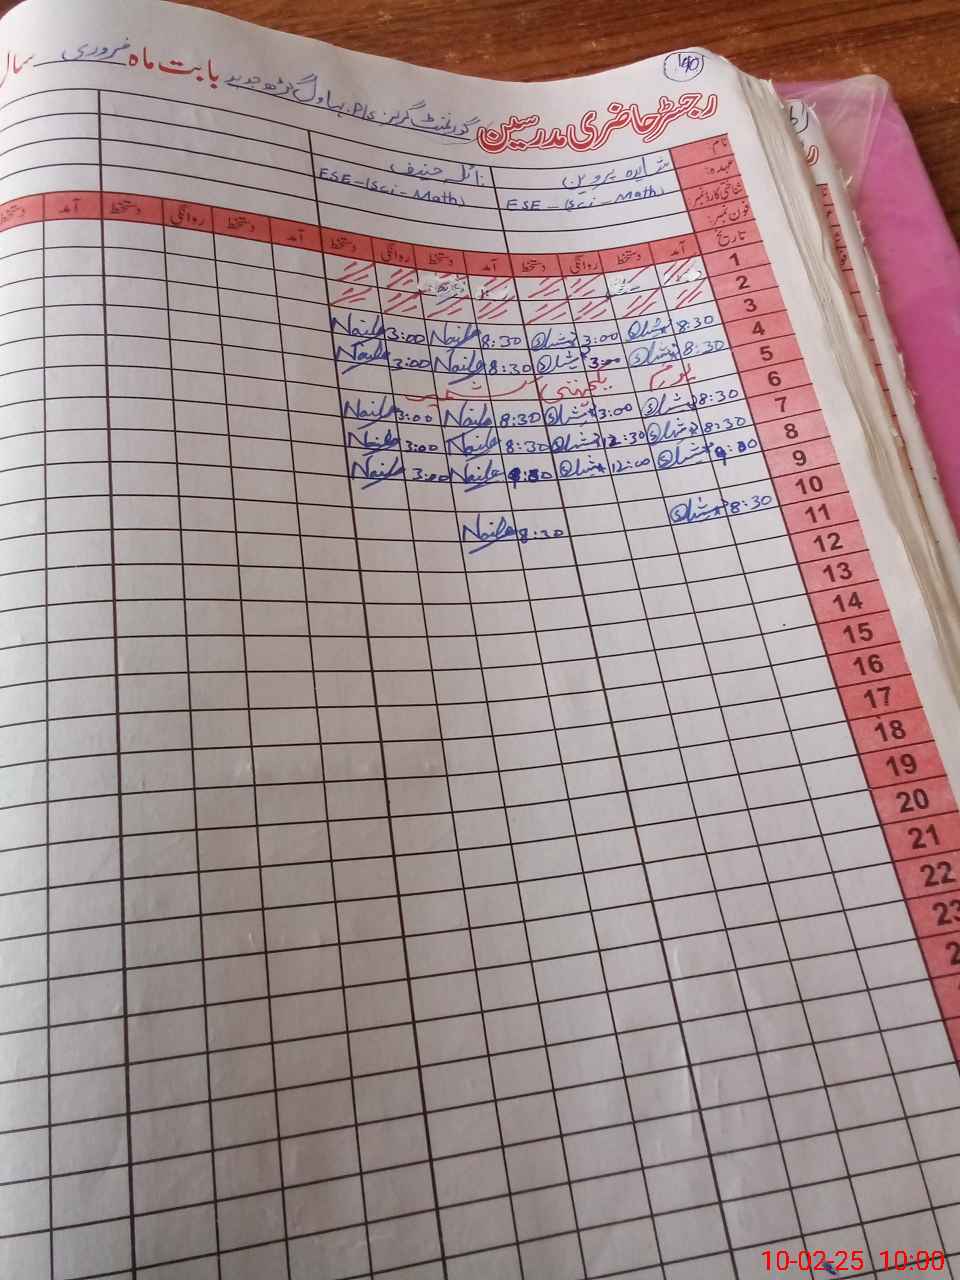 140
رجسٹر حاضری مدرسین گورنمنٹ گرلز P/s بہاول گڑھ جدید بابت ماہ فروری سال
نام
شاہدہ پروین نائلہ حنیف
عہدہ:
ESE-(Sci-Math) ESE-(Sci-Math)
شناختی کارڈ نمبر:
فون نمبر:
تاریخ آمد دستخط روانگی دستخط آمد دستخط روانگی دستخط آمد دستخط روانگی دستخط آمد
1
2
3
4 8:30 3:00 8:30 Naila 3:00 Naila
5 8:30 3:00 8:30 Naila 3:00 Naila
6 یوم یکجہتی کشمیر
7 8:30 3:00 8:30 Naila 3:00 Naila
8 8:30 12:30 8:30 Naila 3:00 Naila
9 12:00 Naila 3:00 Naila
10
11 8:30 8:30 Naila
12
13
14
15
16
17
18
19
20
21
22
23
10-02-25 10:00